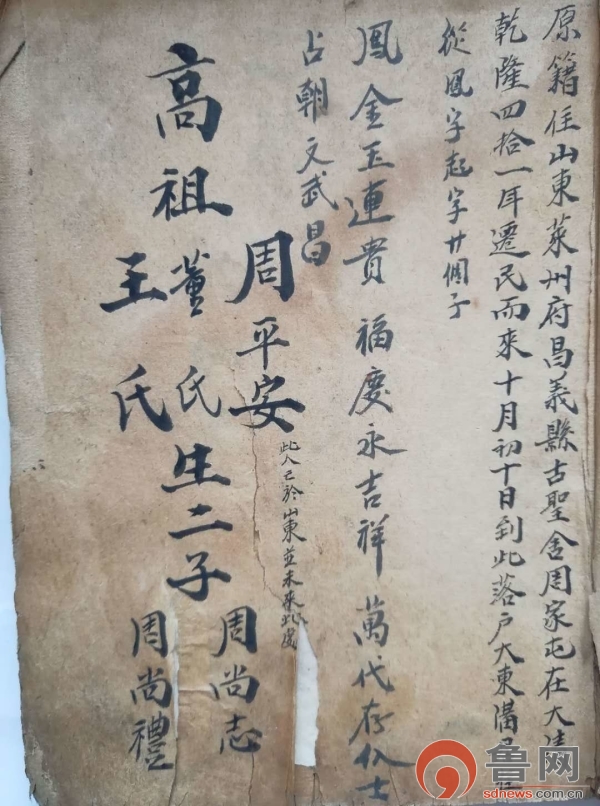 原籍住山東萊州府昌義縣古聖舍周家屯在大清
乾隆四拾一年遷民而來十月初十日到此落户大東溝
從鳳字起字廿個字
鳳金玉連貴 福慶永吉祥 萬代存仏士
占朝文武昌
周平安
此人已於山東並未來此處
高祖
董氏
王氏
生二子
周尚志
周尚禮
鲁网
sdnews.com.cn